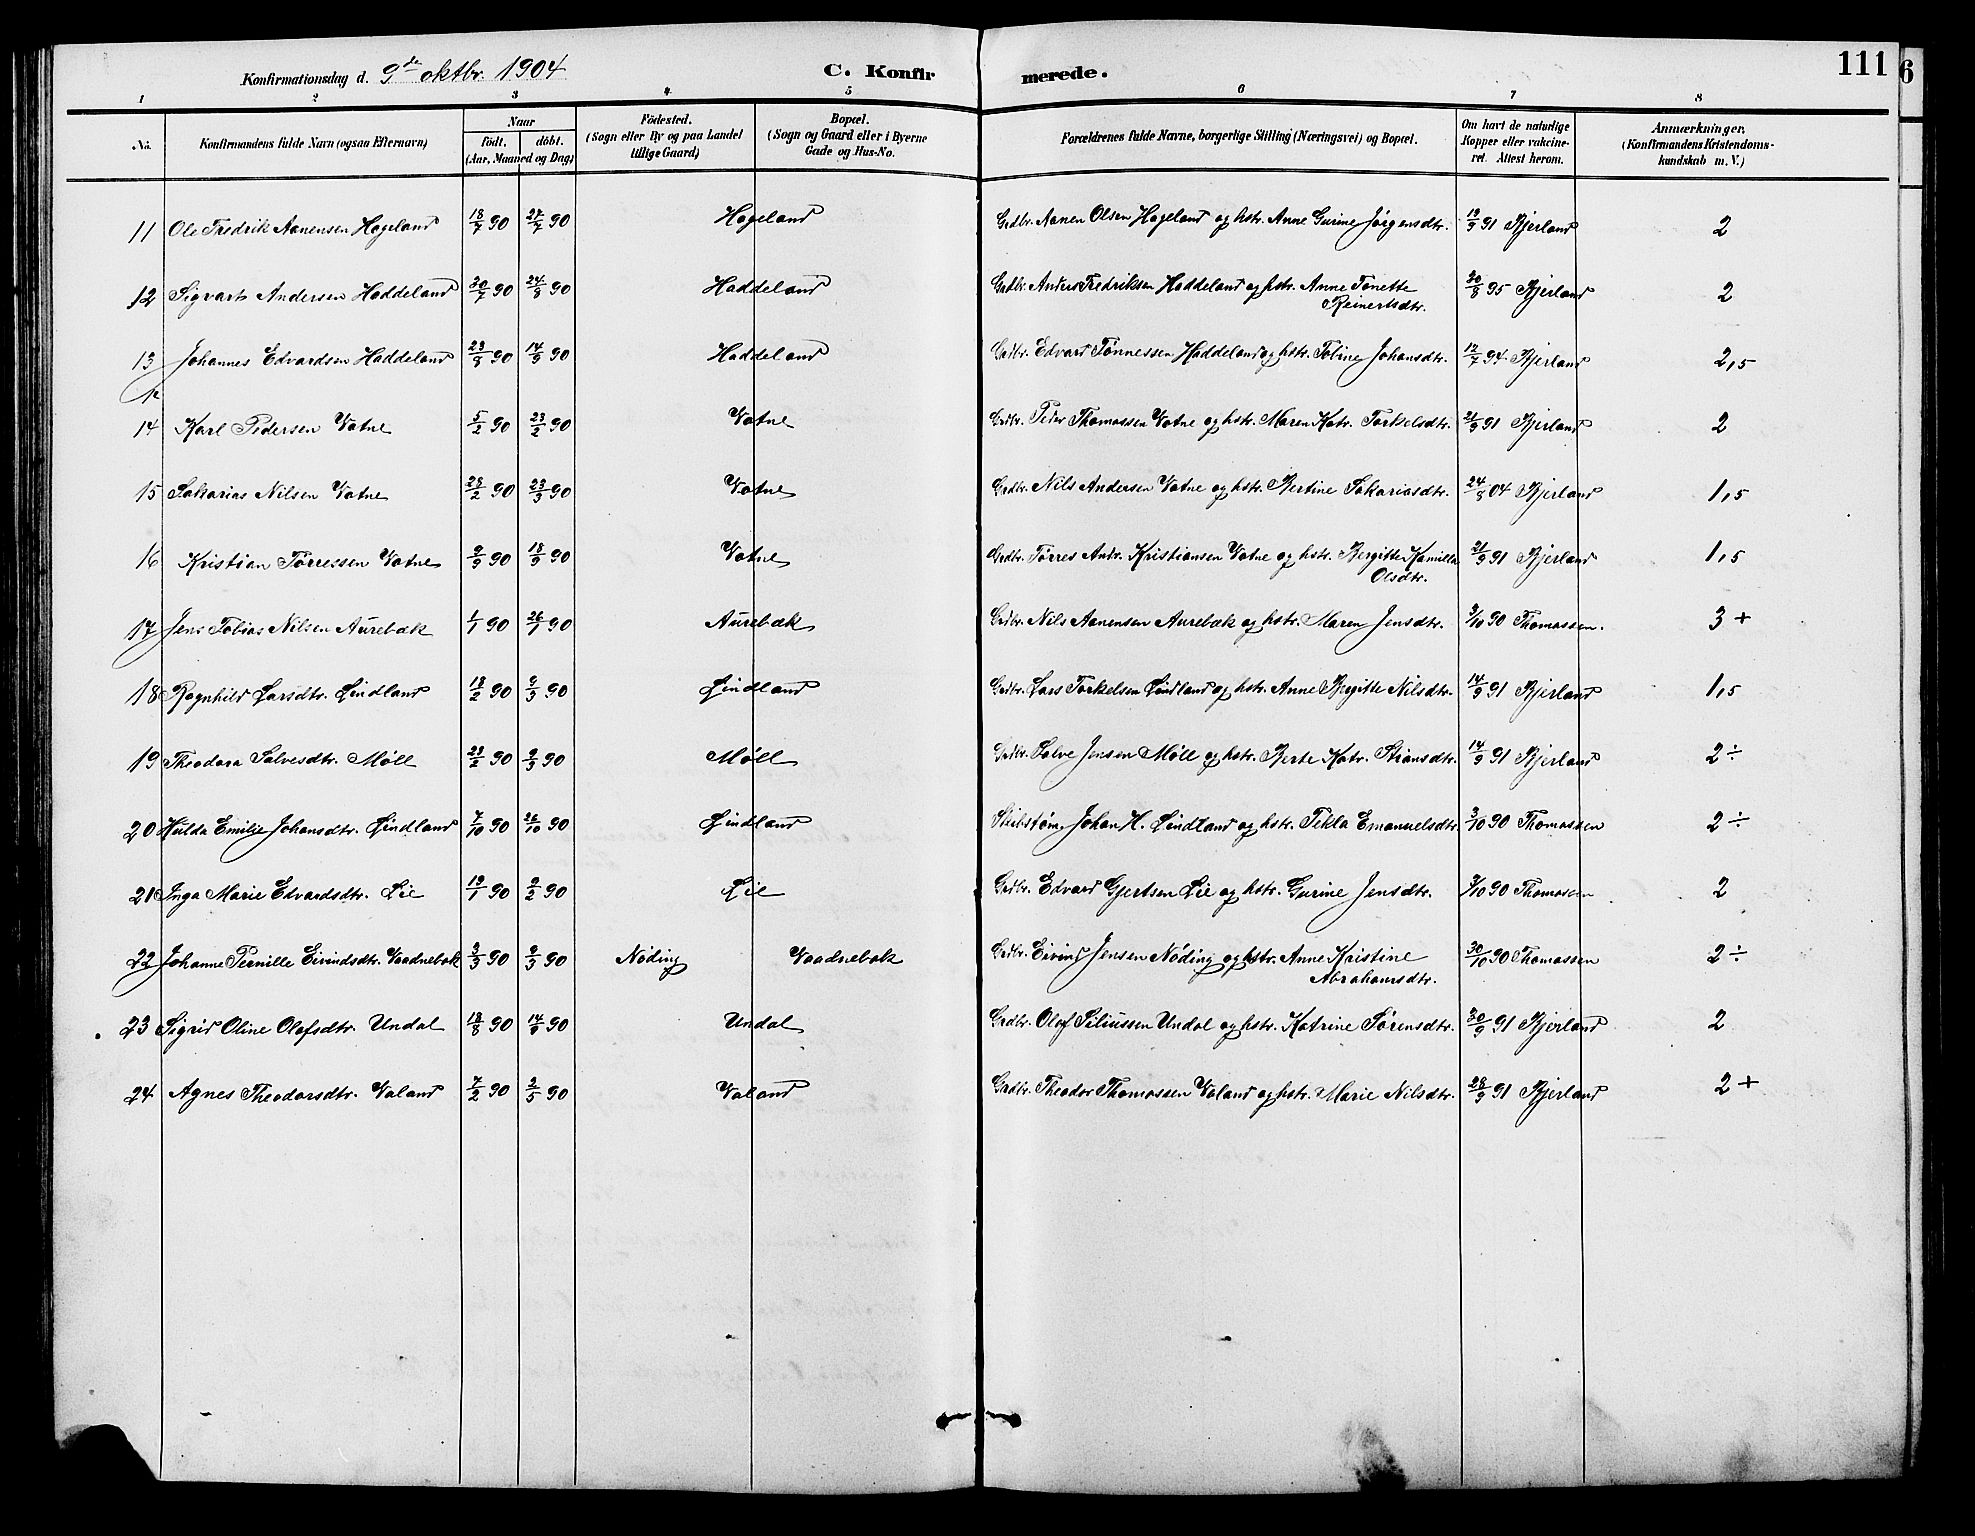 111
6
Konfirmationsdag d. 9de oktbr. 1904
C. Konfirmerede.
1 2 3 4 5 6 7 8
No.
Konfirmandens fulde Navn (ogsaa Efternavn)
Naar
födt. döbt.
(Aar, Maaned og Dag)
Födested.
(Sogn eller By og paa Landet
tillige Gaard)
Bopæl.
(Sogn og Gaard eller i Byerne
Gade og Hus-No.
Forældrenes fulde Navne, borgerlige Stilling (Næringsvei) og Bopæl.
Om havt de naturlige
Kopper eller vakcine-
ret. Attest herom.
Anmærkninger.
(Konfirmandens Kristendoms-
kundskab m. V.)
11 Ole Fredrik Aanensen Hageland 18/7 90 27/7 90 Hageland Grdbr. Aanen Olsen Hageland og hstr. Anne Gurine Jörgensdtr. 19/9 91 Bjerland 2
12 Sigvart Andersen Haddeland 30/7 90 24/8 90 Haddeland Grdbr. Anders Fredriksen Haddeland og hstr. Anne Tonette 20/8 95 Bjerland 2
Reinertsdtr.
13 Johannes Edvardsen Haddeland 23/8 90 14/9 90 Haddeland Grdbr. Edvard Tönnessen Haddeland og hstr. Tobine Johansdtr. 12/7 94 Bjerland 2,5
14 Karl Pedersen Vatne 5/2 90 23/2 90 Vatne Grdbr. Peder Thomassen Vatne og hstr. Maren Katr. Torkelsdtr. 21/9 91 Bjerland 2
15 Sakarias Nilsen Vatne 28/2 90 23/3 90 Vatne Grdbr. Nils Andersen Vatne og hstr. Bertine Sakariasdtr. 24/8 04 Bjerland 1,5
16 Kristian Törressen Vatne 9/9 90 18/9 90 Vatne Grdbr. Törres Antr. Kristiansen Vatne og hstr. Bergitte Kamilla 21/9 91 Bjerland 1,5
Olsdtr.
17 Jens Tobias Nilsen Aurebæk 1/1 90 26/1 90 Aurebæk Grdbr. Nils Aanensen Aurebæk og hstr. Maren Jensdtr. 3/10 90 Thomassen. 3 +
18 Ragnhild Larsdtr. Lindland 18/2 90 9/3 90 Lindland Grdbr. Lars Torkelsen Lindland og hstr. Anne Bergitte Nilsdtr. 14/9 91 Bjerland 1,5
19 Theodora Salvesdtr. Möll 23/2 90 9/3 90 Möll Grdbr. Salve Jensen Möll og hstr. Berte Katr. Stiansdtr. 14/9 91 Bjerland 2 ÷
20 Hulda Emilie Johansdtr. Lindland 7/10 90 26/10 90 Lindland Johan H. Lindland og hstr. Tekla Emanuelsdtr. 3/10 90 Thomassen 2 ÷
21 Inga Marie Edvardsdtr. Lie 19/1 90 9/2 90 Lie Grdbr. Edvard Gjertsen Lie og hstr. Gurine Jensdtr. 3/10 90 Thomassen 2
22 Johanne Pernille Eivindsdtr. Vaadnebæk 3/3 90 9/3 90 Nöding Vaadnebæk Grdbr. Eivind Jensen Nöding og hstr. Anne Kristine 30/10 90 Thomassen 2 ÷
Abrahamsdtr.
23 Sigrid Oline Olafsdtr. Undal 18/8 90 14/9 90 Undal Grdbr. Olaf Siliussen Undal og hstr. Katrine Sörensdtr. 30/9 91 Bjerland 2
24 Agnes Theodorsdtr. Valand 7/2 90 2/5 90 Valand Grdbr. Theodor Thomassen Valand og hstr. Marie Nilsdtr. 28/9 91 Bjerland 2 +